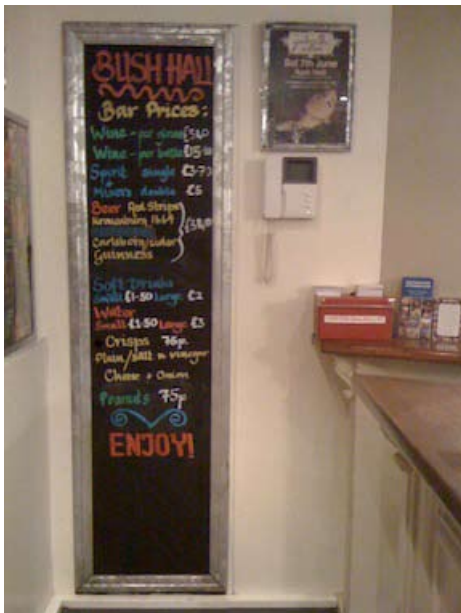 BUSH HALL
Bar Prices:
Wine - per
Wine - per bottle £15.00
Spirit single £3.75
Mixers double £5
Beer Red Stripe
Kronenbourg 1664
Carlsberg/cider
Guinness
Soft Drinks
Small £1-50 Large £2
Water
Small £1.50 Large £3
Crisps 75p
Plain/Salt n vinegar
Cheese + Onion
Peanuts 75p
ENJOY!
Sat 7th June